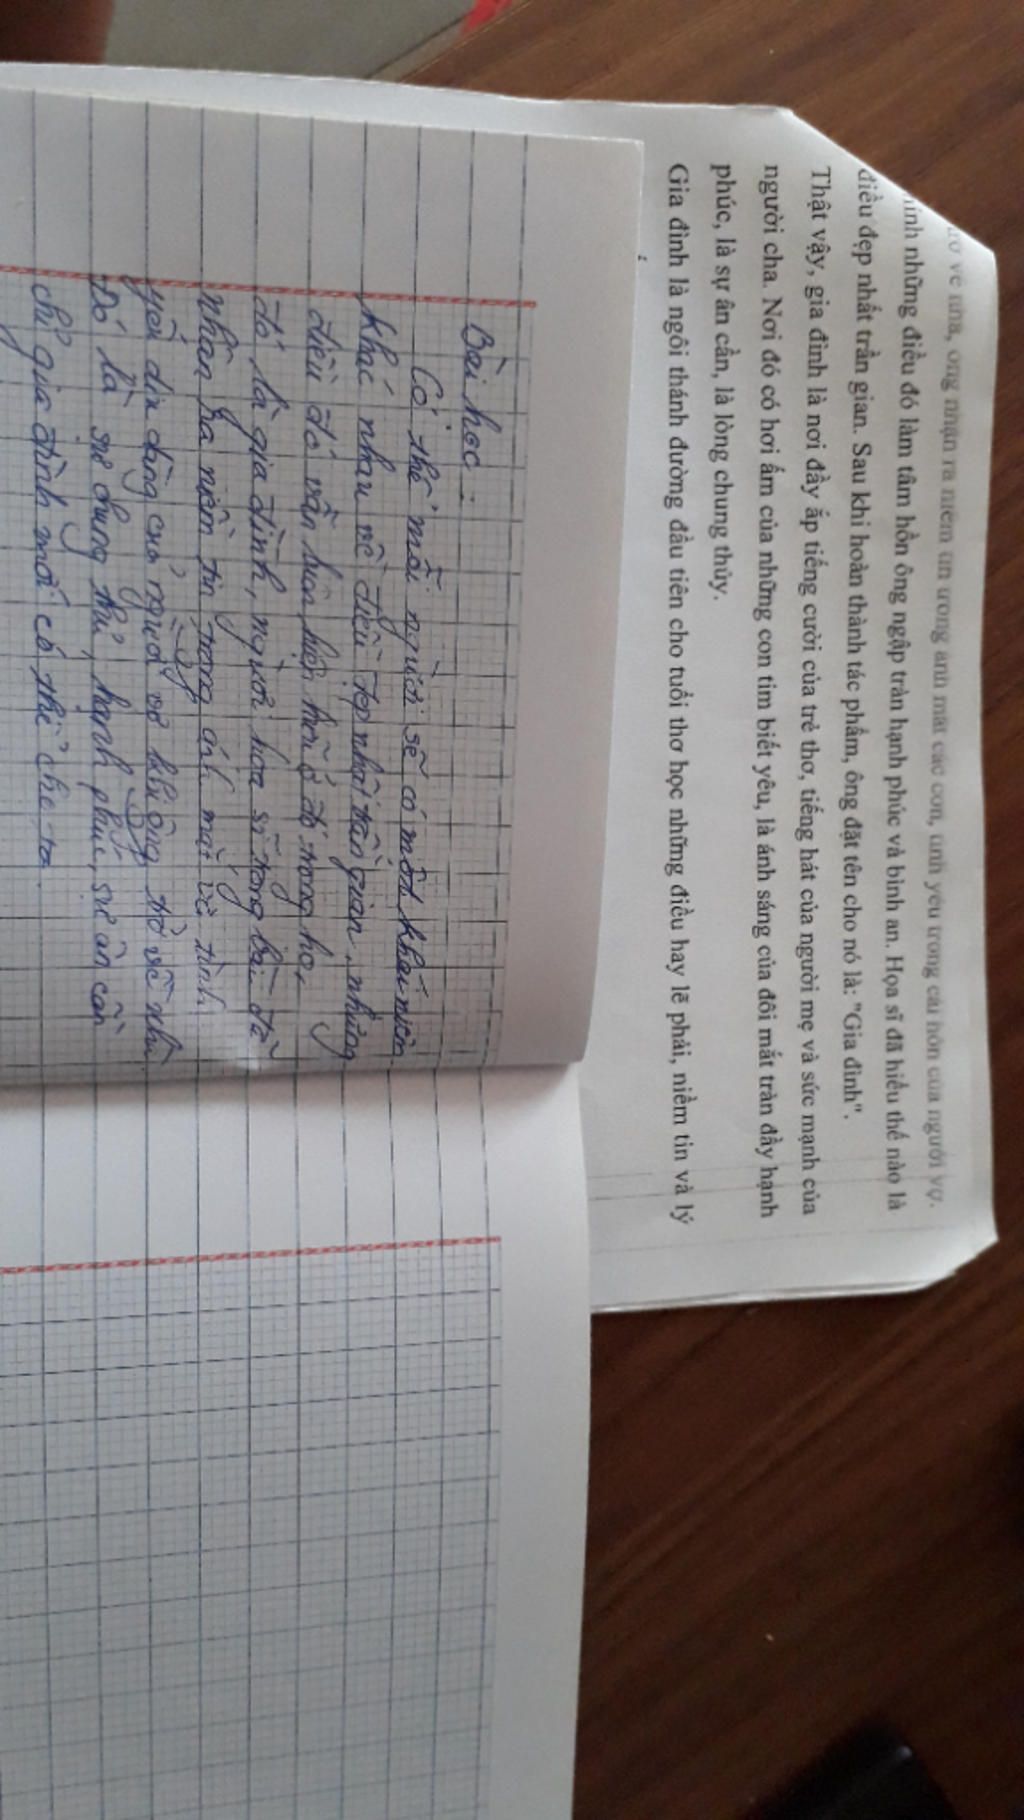 về nhà, ông nhận ra niềm tin trong ánh mắt các con, tình yêu trong cái hôn của người vợ.
hính những điều đó làm tâm hồn ông ngập tràn hạnh phúc và bình an. Họa sĩ đã hiểu thế nào là
điều đẹp nhất trần gian. Sau khi hoàn thành tác phẩm, ông đặt tên cho nó là: "Gia đình".
Thật vậy, gia đình là nơi đầy ắp tiếng cười của trẻ thơ, tiếng hát của người mẹ và sức mạnh của
người cha. Nơi đó có hơi ấm của những con tim biết yêu, là ánh sáng của đôi mắt tràn đầy hạnh
phúc, là sự ân cần, là lòng chung thủy.
Gia đình là ngôi thánh đường đầu tiên cho tuổi thơ học những điều hay lẽ phải, niềm tin và lý
Bài học:
Có thể mỗi người sẽ có một khái niệm
khác nhau về điều đẹp nhất trần gian, nhưng
điều đó vẫn luôn hiện hữu ở đó trong họ,
đó là gia đình, người họa sĩ trong bài đã
nhận ra niềm tin trong ánh mắt và tình
yêu dịu dàng của người vợ khi ông trở về nhà.
Đó là sự chung thủy, hạnh phúc, sự ân cần
chỉ gia đình mới có thể cho ta.